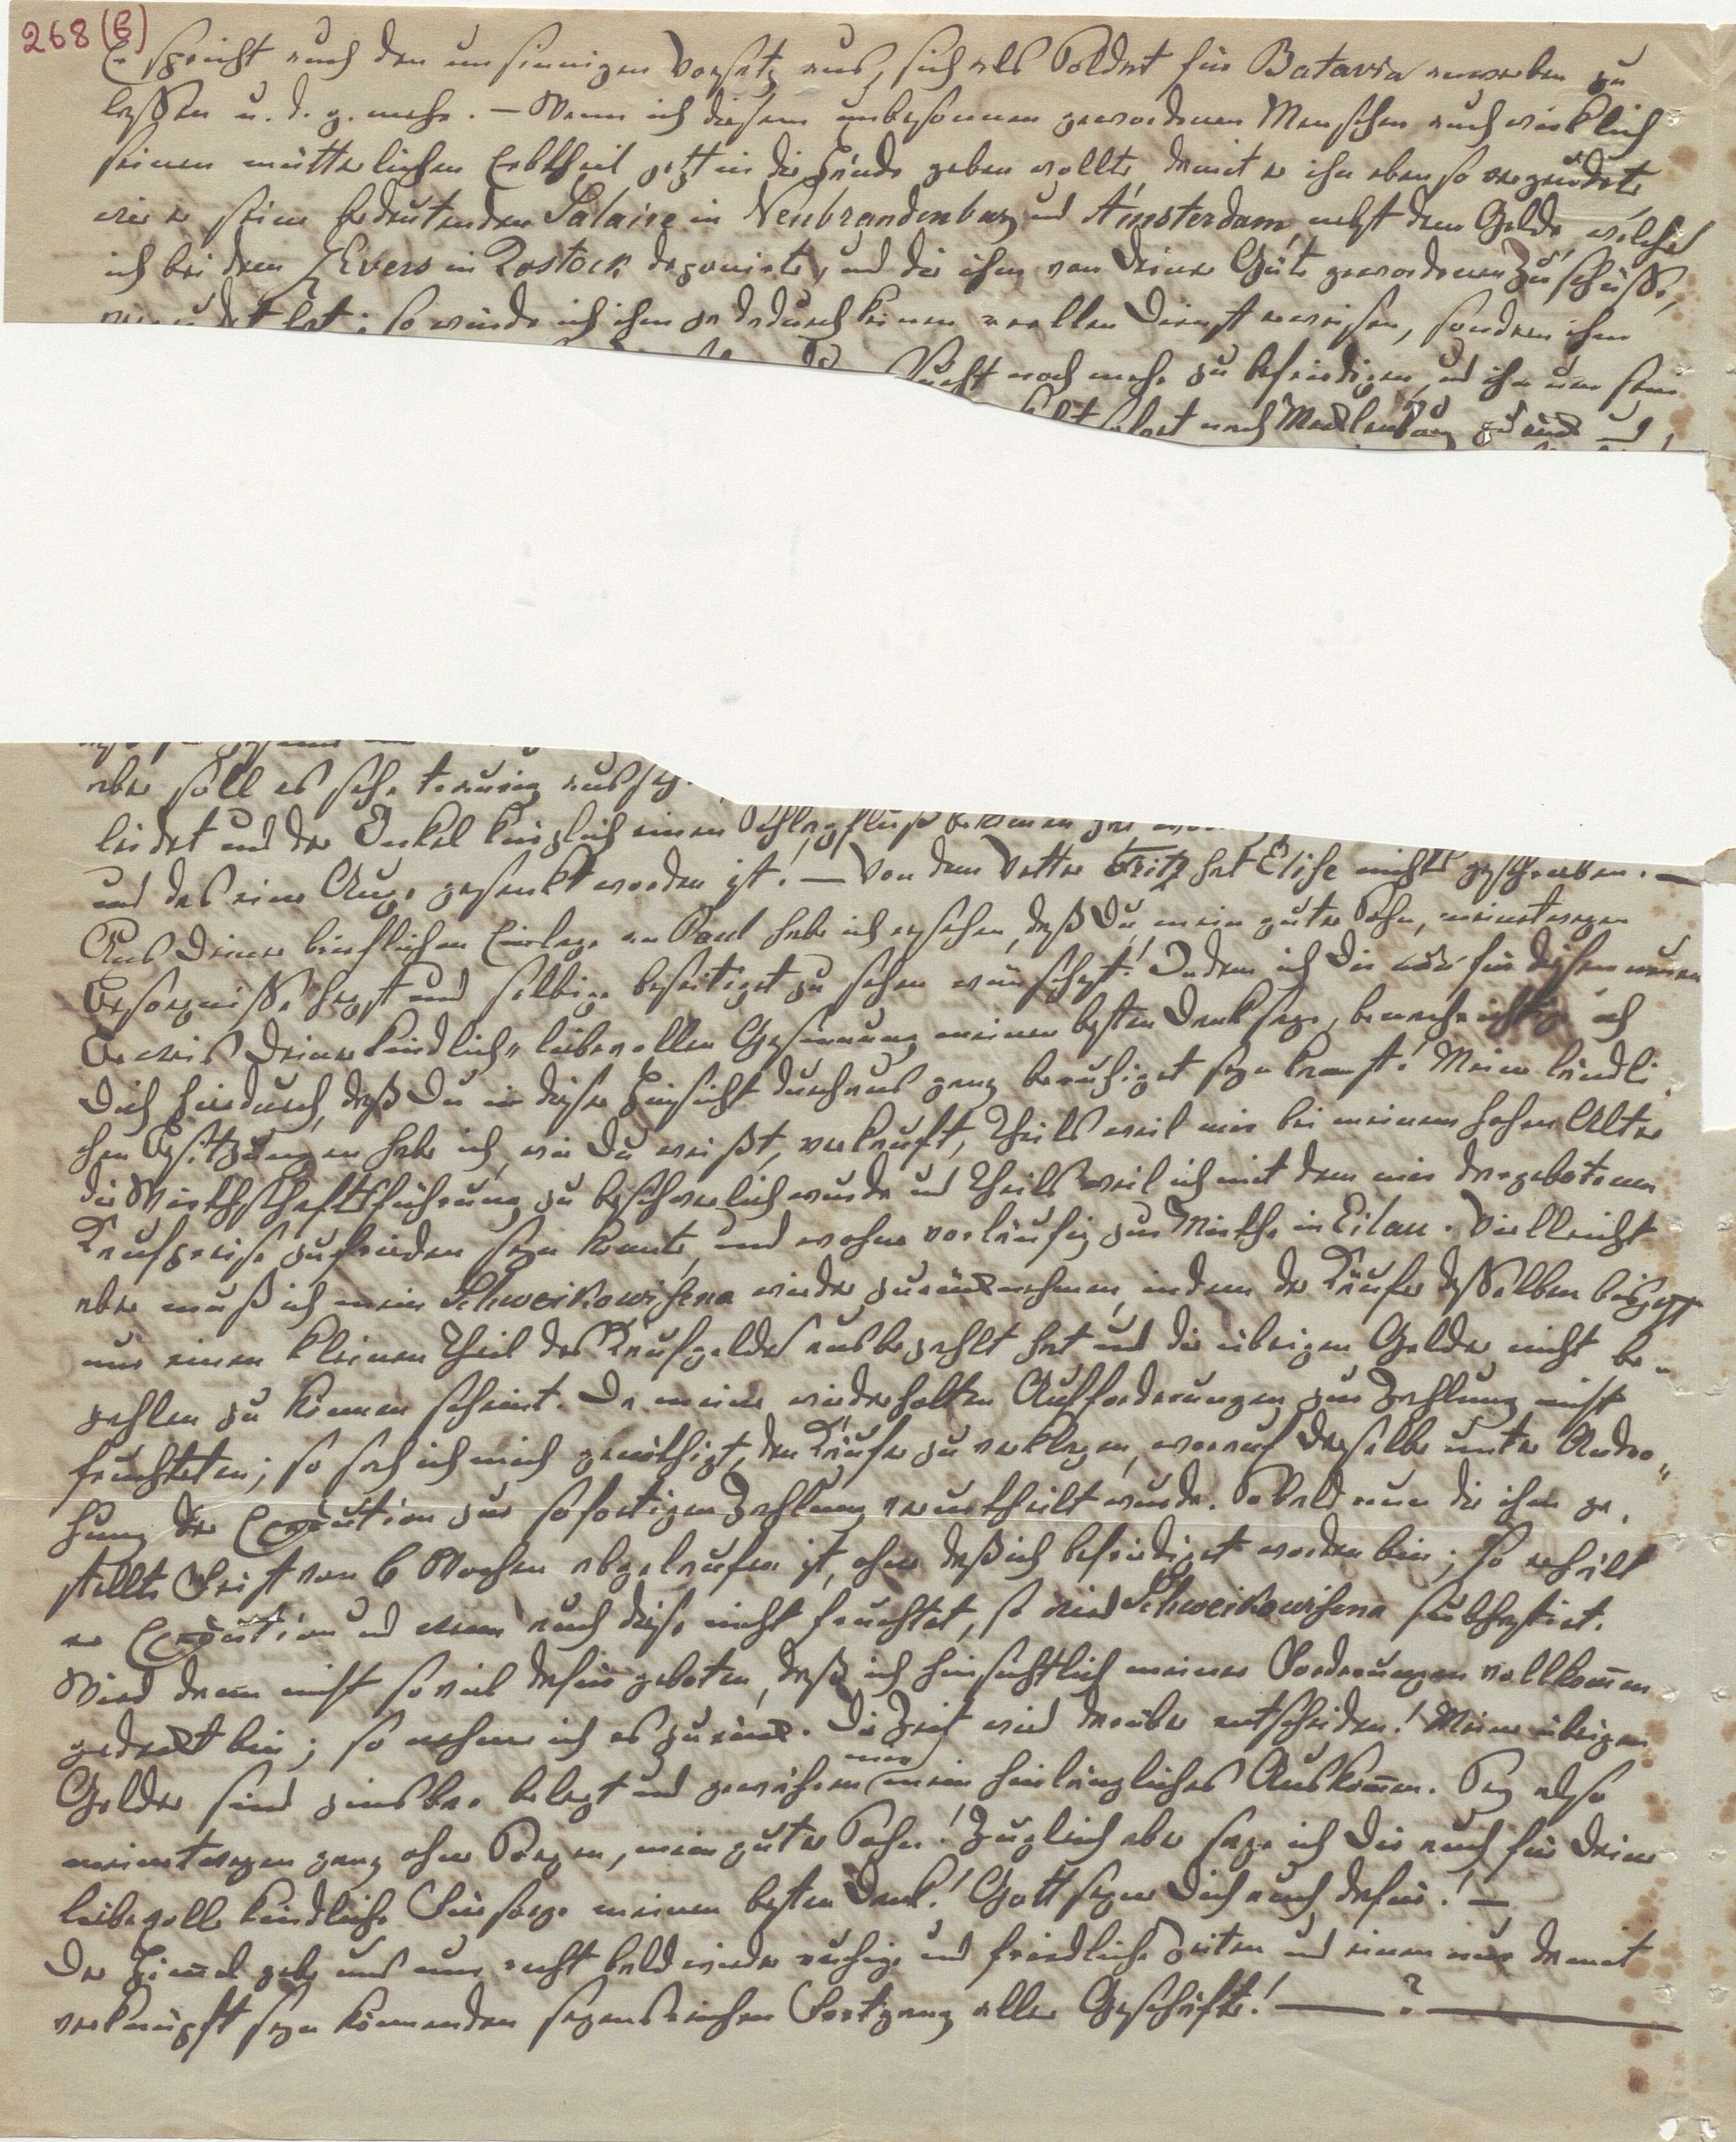 268(B)
Er spricht auch den unsinnigen Vorsatz aus, sich als Soldat für Batavia anwerben zu
lassen u. d. g. mehr. – Wenn ich diesem unbesonnen gewordenen Menschen auch wirklich
seinen mütterlichen Erbtheil jetzt in die Hände geben wollte, damit er ihn eben so vergeudete
wie er seine bedeutenden Salaire in Neubrandenburg und Amsterdam, nebst dem Gelde, welches
ich bei dem Evers in Rostock deponirte, und die ihm von Deiner Güte gewordenen Zuschüsse,
vergeudet hat; so würde ich ihm ja dadurch keinen reellen Dienst erweisen, sondern ihm
Sucht noch mehr zu befriedigen, und ihn um sein
nach Mecklenburg zurück und
aber soll es sehr traurig
leidet und der Onkel kürzlich einen Schlagfluß bekommen
und das eine Auge gesenkt worden ist. – Von dem Vetter Fritz hat Elise nichts geschrieben. –
Aus Deiner brieflichen Einlage an Paul habe ich ersehen, daß Du, mein guter Sohn, meinetwegen
Besorgnisse hegst und selbige beseitiget zu sehen wünschest. Indem ich Dir für diesen neuen
Beweis Deiner kindlich liebevollen Gesinnung meinen besten Dank sage, benachrichtige ich
Dich hierdurch, daß Du in dieser Hinsicht durchaus ganz beruhiget seyn kannst! Meine ländli-
chen Besitzungen habe ich, wie Du weißt, verkauft, theils weil mir bei meinem hohen Alter
die Wirthschaftsführung zu beschwerlich wurde und theils weil ich mit dem mir dargebotenen
Kaufpreise zufrieden seyn konnte, und wohne vorläufig zur Miethe in Eilau. Vielleicht
aber muß ich mein wieder zurücknehmen, indem der Käufer desselben bis jetzt
nur einen kleinen Theil des Kaufgeldes ausbezahlt hat und die übrigen Gelder nicht be-
zahlen zu können scheint. Da meine wiederholten Aufforderungen zur Zahlung nicht
fruchteten; so sah ich mich genöthigt, den Käufer zu verklagen, worauf derselbe unter Andro-
hung der Execution zur sofortigen Zahlung verurtheilt wurde. Sobald nun die ihm ge-
stellte Frist von 6 Wochen abgelaufen ist, ohne daß ich befriediget worden bin; so erhält
er Execution und wenn auch diese nicht fruchtet, so wird subhastirt.
Wird dann nicht so viel dafür geboten, daß ich hinsichtlich meiner Forderungen vollkom̄en
gedeckt bin; so nehme ich es zurück. Die Zeit wird darüber entscheiden! Meine übrigen
Gelder sind zinsbar belegt und gewähren mir mein hinlängliches Auskom̄en. Sey also
meinetwegen ganz ohne Sorgen, mein guter Sohn! Zugleich aber sage ich Dir auch für Deine
liebevolle kindliche Fürsorge meinen besten Dank! Gott segne Dich auch dafür! –
Der Him̄el gebe uns nun recht bald wieder ruhige und friedliche Zeiten und einen nur damit
verknüpft seyn könnenden segensreichen Fortgang aller Geschäfte! — ? —